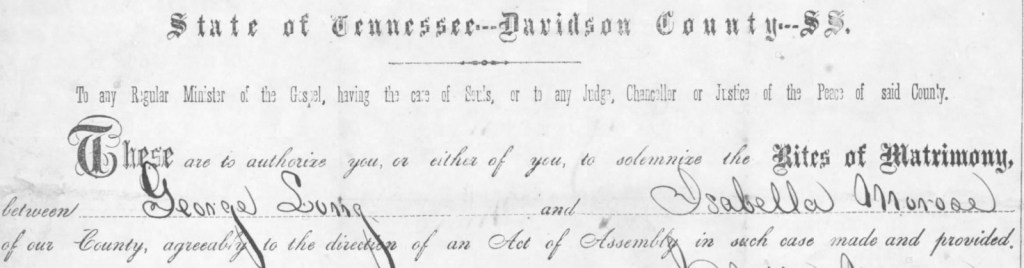 State of Tennessee---Davidson County---SS.
To any Regular Minister of the Gospel, having the care of Souls, or to any Judge, Chancellor or Justice of the Peace of said County.
These are to authorize you, or either of you, to solemnize the Rites of Matrimony,
between George Long and Isabella
of our County, agreeably to the direction of an Act of Assembly in such case made and provided.